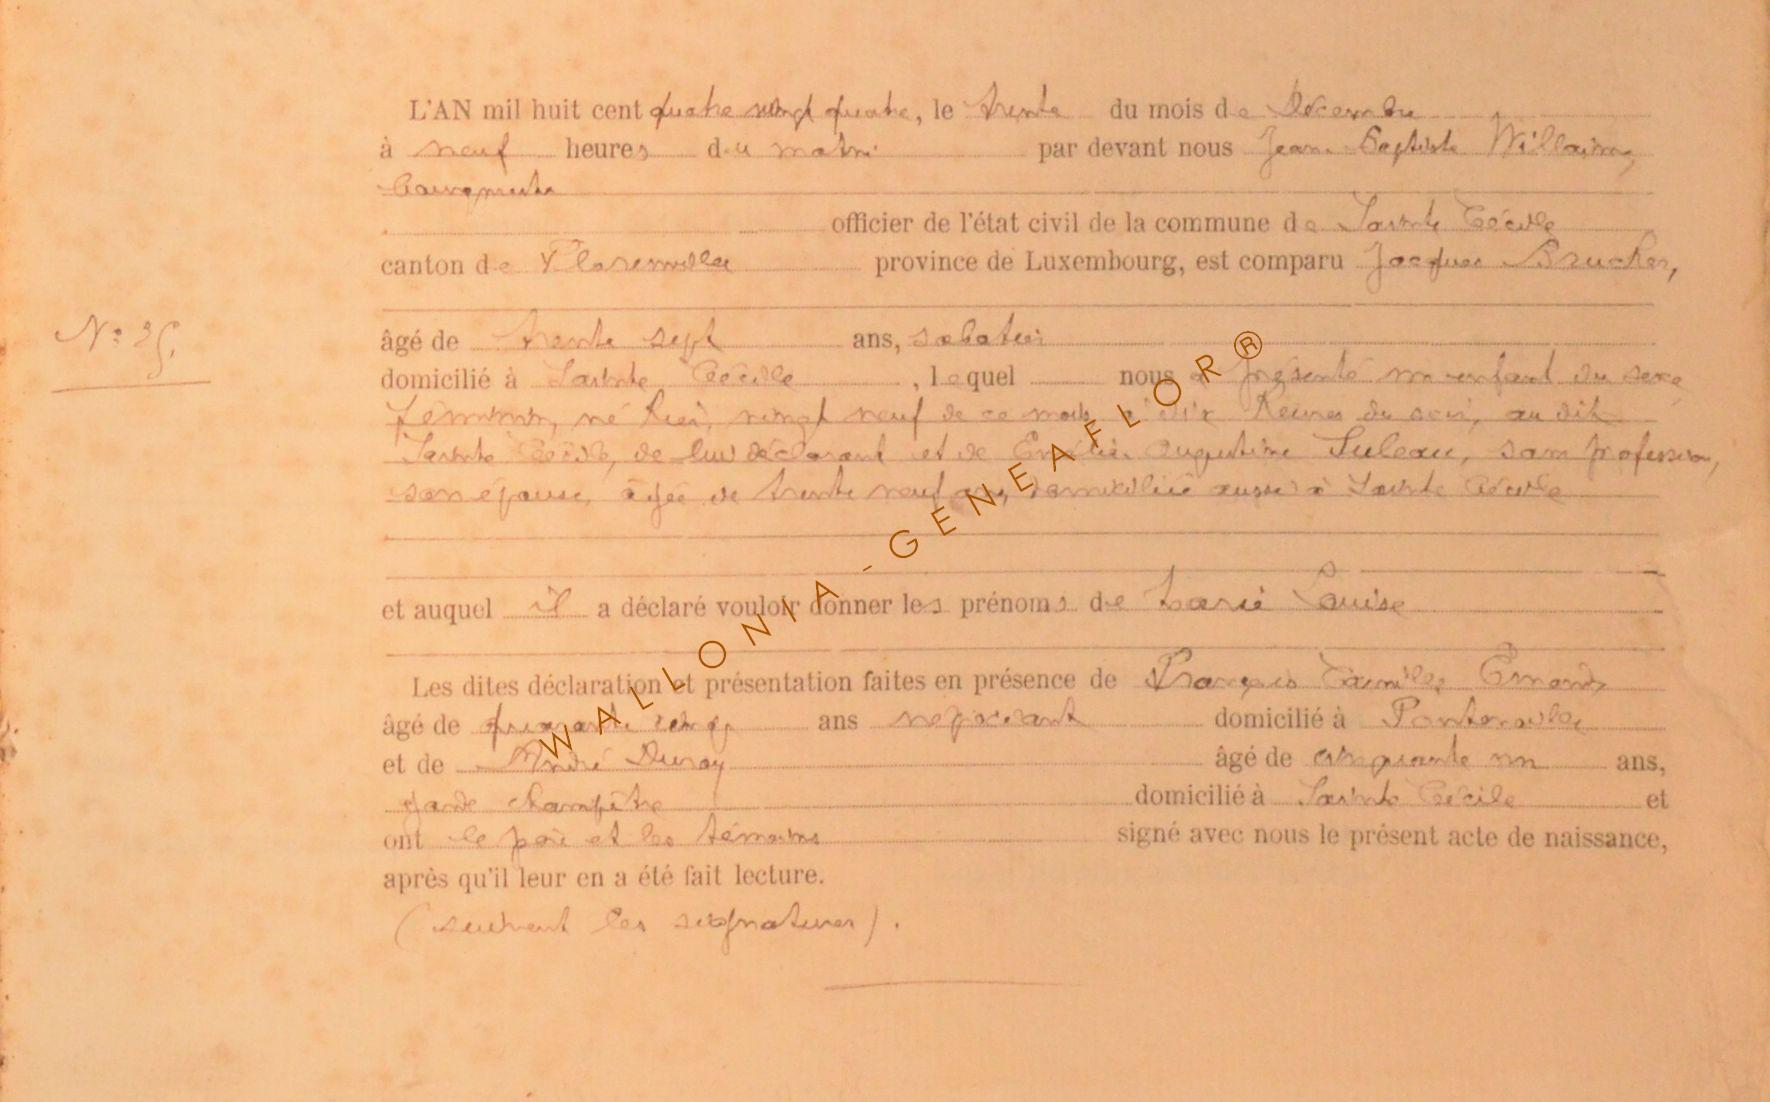 L'AN mil huit cent quatre vingt quatre, le trente du mois de Décembre
à neuf heures du matin par devant nous Jean Baptiste Willaime,
bourgmestre
officier de l'état civil de la commune de Sainte Cécile
canton de Florenville province de Luxembourg, est comparu Jacques Brucker,
N° 25.
âgé de trente sept ans, sabotier
domicilié à Sainte Cécile, lequel nous a présenté un enfant du sexe
féminin, né hier, vingt neuf de ce mois à dix heures du soir, au dit
Sainte Cécile, de lui déclarant et de Emélie Augustine Suleau, sans profession,
son épouse, âgée de trente neuf ans, domiciliée aussi à Sainte Cécile
et auquel il a déclaré vouloir donner les prénoms de Marie Louise
Les dites déclaration et présentation faites en présence de François Camille Emond
âgé de quarante cinq ans négociant domicilié à
et de André Duroy âgé de cinquante un ans,
garde champêtre domicilié à Sainte Cécile et
ont le père et les témoins signé avec nous le présent acte de naissance,
après qu'il leur en a été fait lecture.
(suivent les signatures).
WALLONIA-GENEAFLOR®